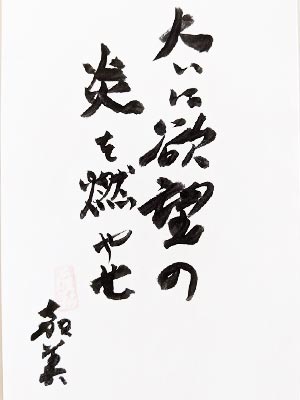 大いに欲望の
炎を燃やせ
嘉美